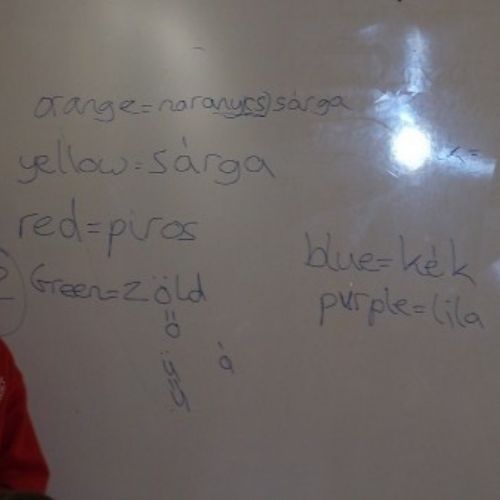 orange=narany(cs)sárga
yellow=sárga
red=piros
Green=zöld
ö
á
blue=kék
purple=lila